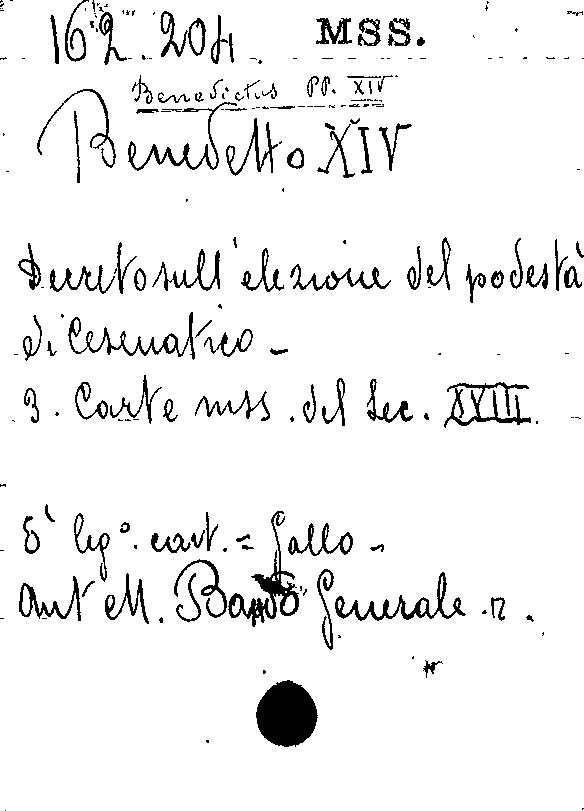 162.204. MSS.
Benedictus PP. XIV
Benedetto XIV
Decreto sull'elezione del podestà
di Cesenatico -
3. Carte mss. del Sec. XVIII.
È leg°. cart. = Gallo -
Ant M. Bando Generale